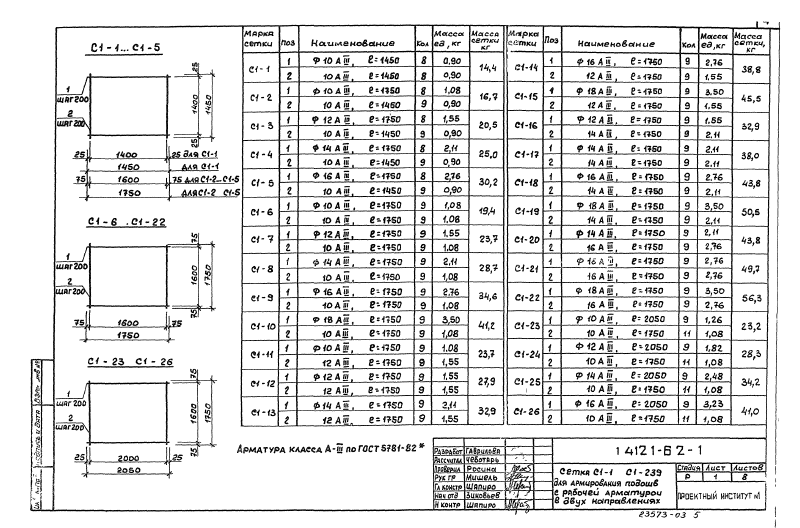 С1-1...С1-5
25
1
ШАГ 200
2
ШАГ 200
1400
1450
25
25 1400 25 для С1-1
1450 для С1-1
75 1600 75 для С1-2...С1-5
1750 для С1-2 С1-5
С1-6 .С1-22
75
1
ШАГ 200
2
ШАГ 200
1600
1750
75
75 1600 75
1750
С1-23 С1-26
75
1
ШАГ 200
2
ШАГ 200
1600
1750
75
25 2000 25
2050
Марка сетки Поз Наименование Кол Масса ед,кг Масса сетки кг
С1-1 1 Ф 10 А III, ℓ=1450 8 0,90 14,4
2 10 А III, ℓ=1450 8 0,90
С1-2 1 Ф 10 А III, ℓ=1750 8 1,08 16,7
2 10 А III, ℓ=1450 9 0,90
С1-3 1 Ф 12 А III, ℓ=1750 8 1,55 20,5
2 10 А III, ℓ=1450 9 0,90
С1-4 1 Ф 14 А III, ℓ=1750 8 2,11 25,0
2 10 А III, ℓ=1450 9 0,90
С1-5 1 Ф 16 А III, ℓ=1750 8 2,76 30,2
2 10 А III, ℓ=1450 9 0,90
С1-6 1 Ф 10 А III, ℓ=1750 9 1,08 19,4
2 10 А III, ℓ=1750 9 1,08
С1-7 1 Ф 12 А III, ℓ=1750 9 1,55 23,7
2 10 А III, ℓ=1750 9 1.08
С1-8 1 Ф 14 А III, ℓ=1750 9 2,11 28,7
2 10 А III, ℓ=1750 9 1,08
С1-9 1 Ф 16 А III, ℓ=1750 9 2,76 34,6
2 10 А III, ℓ=1750 9 1,08
С1-10 1 Ф 18 А III, ℓ=1750 9 3,50 41,2
2 10 А III, ℓ=1750 9 1,08
С1-11 1 Ф 10 А III, ℓ=1750 9 1.08 23,7
2 12 А III, ℓ=1750 9 1,55
С1-12 1 Ф 12 А III, ℓ=1750 9 1,55 27,9
2 12 А III, ℓ=1750 9 1,55
С1-13 1 Ф 14 А III, ℓ=1750 9 2,11 32,9
2 12 А III, ℓ=1750 9 1,55
Марка сетки Поз Наименование Кол Масса ед,кг Масса сетки, кг
С1-14 1 Ф 16 А III, ℓ=1750 9 2,76 38,8
2 12 А III, ℓ=1750 9 1,55
С1-15 1 Ф 18 А III, ℓ=1750 9 3.50 45,5
2 12 А III, ℓ=1750 9 1.55
С1-16 1 Ф 12 А III, ℓ=1750 9 1,55 32,9
2 14 А III, ℓ=1750 9 2,11
С1-17 1 Ф 14 А III, ℓ=1750 9 2,11 38,0
2 14 А III, ℓ=1750 9 2.11
С1-18 1 Ф 16 А III, ℓ=1750 9 2.76 43,8
2 14 А III, ℓ=1750 9 2,11
С1-19 1 Ф 18 А III, ℓ=1750 9 3,50 50,5
2 14 А III, ℓ=1750 9 2,11
С1-20 1 Ф 14 А III, ℓ=1750 9 2,11 43,8
2 16 А III, ℓ=1750 9 2,76
С1-21 1 Ф 16 А III, ℓ=1750 9 2,76 49,7
2 16 А III, ℓ=1750 9 2,76
С1-22 1 Ф 18 А III, ℓ=1750 9 3,50 56,3
2 16 А III, ℓ=1750 9 2,76
С1-23 1 Ф 10 А III, ℓ=2050 9 1,26 23,2
2 10 А III, ℓ=1750 11 1,08
С1-24 1 Ф 12 А III, ℓ=2050 9 1,82 28,3
2 10 А III, ℓ=1750 11 1,08
С1-25 1 Ф 14 А III, ℓ=2050 9 2,48 34,2
2 10 А III, ℓ=1750 11 1,08
С1-26 1 Ф 16 А III, ℓ=2050 9 3,23 41,0
2 10 А III, ℓ=1750 11 1,08
Арматура класса А-III по ГОСТ 5781-82*
Разработ Гаврилова
Рассчитал Чеботарь
Проверил Росина
Рук гр Мишель
Гл констр Шапиро
Нач отд Зиновьев
Н контр Шапиро
1 4121-6 2-1
Сетка С1-1 С1-239
для армирования подошв
с рабочей арматурой
в двух направлениях
Стадия Лист Листов
Р 1 8
ПРОЕКТНЫЙ ИНСТИТУТ №1
23573-03 5